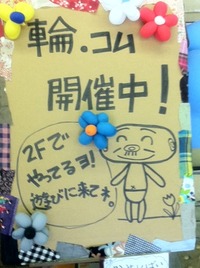 輪.コム
開催中!
2Fで
やってるヨ!
遊びに来てネ。